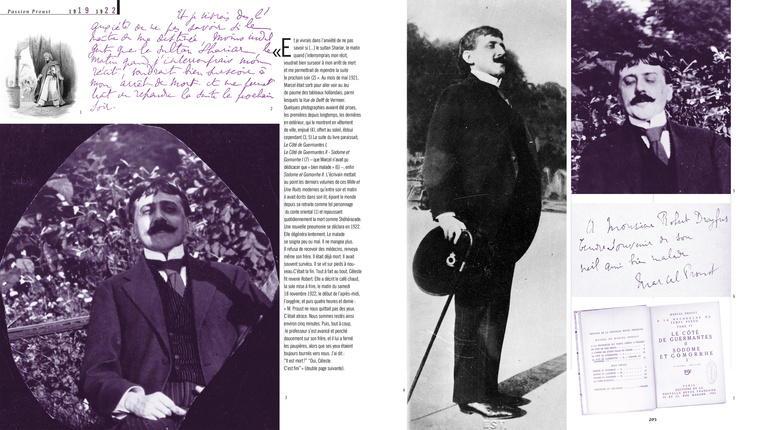 Passion Proust 1919 1922
Et je vivrais dans l'
anxiété de ne pas savoir si le
maître de ma destinée, moins indul
gent que le sultan Sheriar, le
matin quand j'interromprais mon
récit, voudrait bien surseoir à
mon arrêt de mort et me permet
trait de reprendre la suite le prochain
soir.
1
2
«Et je vivrais dans l'anxiété de ne pas
savoir si [...] le sultan Sheriar, le matin
quand j'interromprais mon récit,
voudrait bien surseoir à mon arrêt de mort
et me permettrait de reprendre la suite
le prochain soir (2) ». Au mois de mai 1921,
Marcel était sorti pour aller voir au Jeu
de paume des tableaux hollandais, parmi
lesquels la Vue de Delft de Vermeer.
Quelques photographies avaient été prises,
les premières depuis longtemps, les dernières
en extérieur, qui le montrent en vêtement
de ville, enjoué (4), offert au soleil, ébloui
cependant (3, 5) La suite du livre paraissait,
Le Côté de Guermantes I,
Le Côté de Guermantes II - Sodome et
Gomorrhe I (7) – que Marcel n'avait pu
dédicacer que « bien malade » (6) –, enfin
Sodome et Gomorrhe II. L'écrivain mettait
au point les derniers volumes de ces Mille et
Une Nuits modernes qu'entre soir et matin
il avait écrites dans son lit, épiant le monde
depuis sa retraite comme tel personnage
du conte oriental (1) et repoussant
quotidiennement la mort comme Shéhérazade.
Une nouvelle pneumonie se déclara en 1922.
Elle dégénéra lentement. Le malade
se soigna peu ou mal. Il ne mangea plus.
Il refusa de recevoir des médecins, renvoya
même son frère. Il était déjà mort. Il avait
souvent survécu. Il se vit sur pieds à nou-
veau. C'était la fin. Tout à fait au bout, Céleste
fit revenir Robert. Elle a décrit le café chaud,
la sole mise à frire, le matin du samedi
18 novembre 1922, le début de l'après-midi,
l'oxygène, et puis quatre heures et demie :
« M. Proust ne nous quittait pas des yeux.
C'était atroce. Nous sommes restés ainsi
environ cinq minutes. Puis, tout à coup,
le professeur s'est avancé et penché
doucement sur son frère, et il lui a fermé
les paupières, alors que ses yeux étaient
toujours tournés vers nous. J'ai dit :
"Il est mort ?" "Oui, Céleste.
C'est fini" » (double page suivante).
3
4
5
A Monsieur Robert Dreyfus
Tendre souvenir de son
vieil ami bien malade
Marcel Proust
6
MARCEL PROUST
A LA RECHERCHE DU
TEMPS PERDU
LE CÔTÉ
DE GUERMANTES
II
SODOME
ET GOMORRHE
I
nrf
PARIS
NOUVELLE REVUE FRANÇAISE
7
205